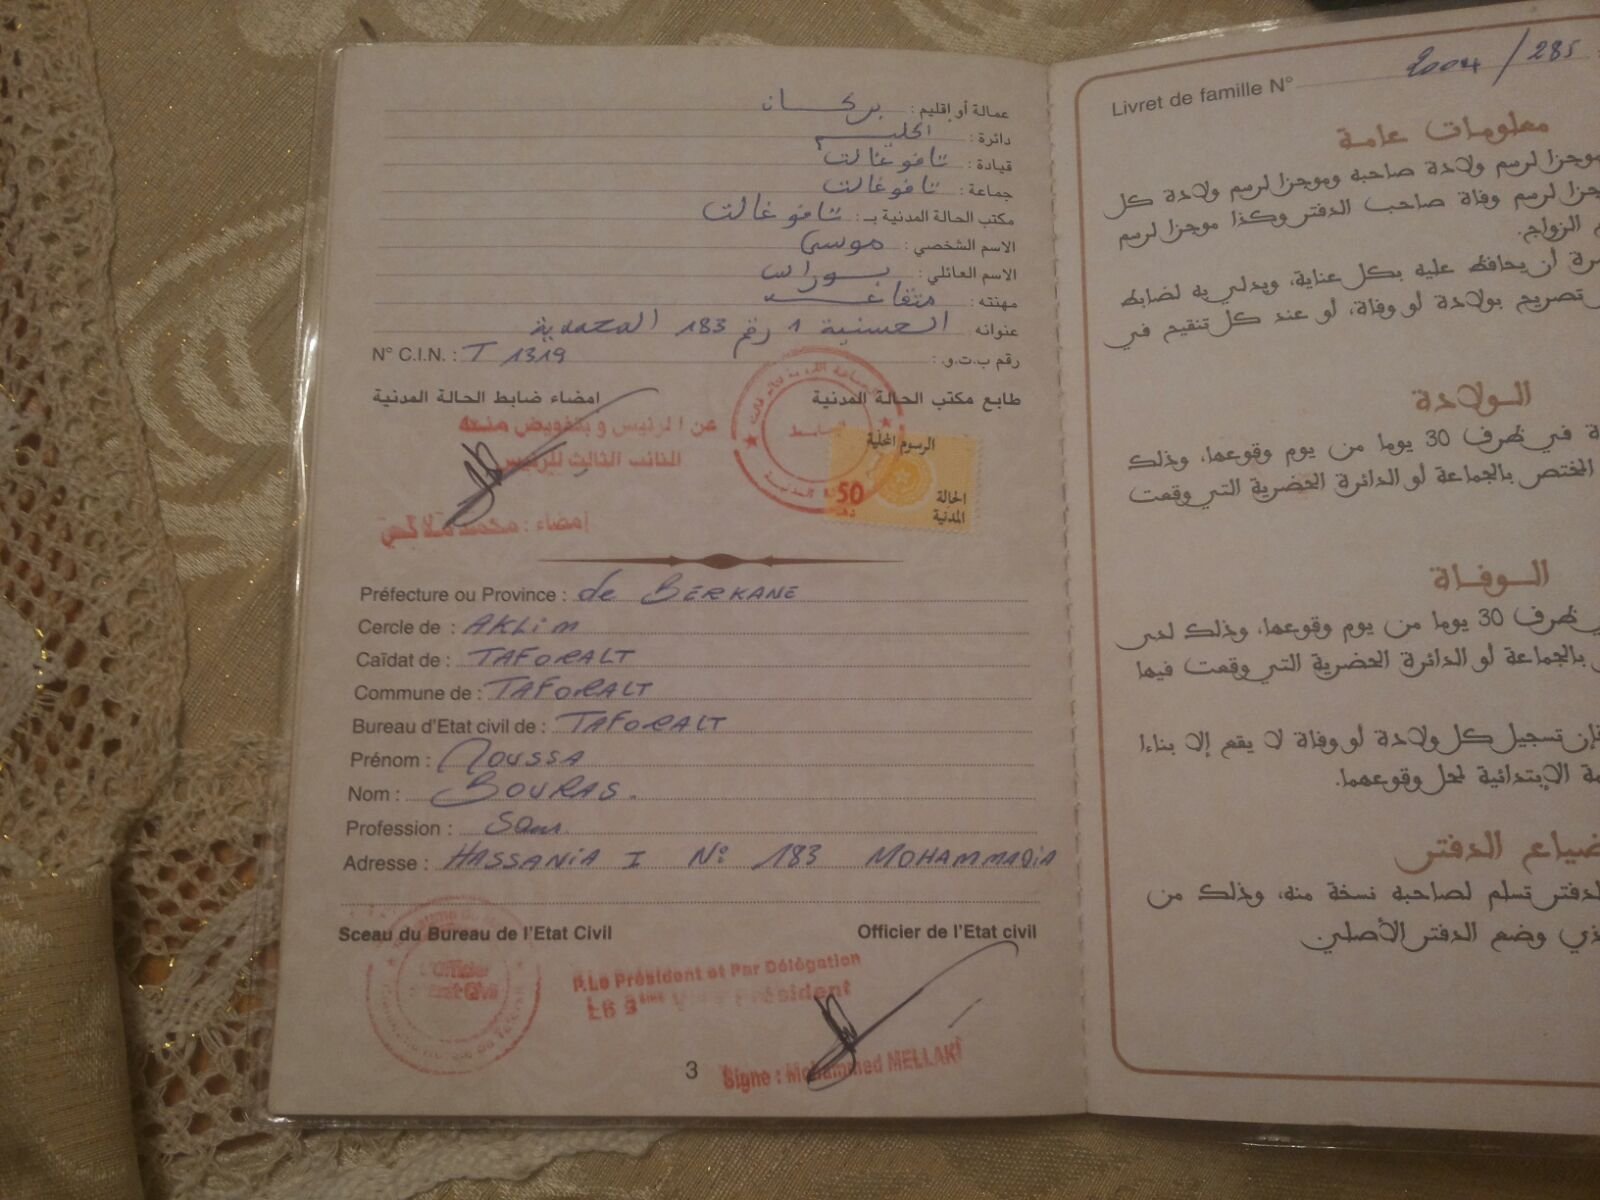 عمالة أو إقليم : بركان
دائرة : اكليم
قيادة : تافوغالت
جماعة : تافوغالت
مكتب الحالة المدنية بـ : تافوغالت
الاسم الشخصي : موسى
الاسم العائلي : بوراس
مهنته :
عنوانه : الحسنية 1 رقم 183 المحمدية
رقم ب.ت.و. :
N° C.I.N. : T 1319
طابع مكتب الحالة المدنية
إمضاء ضابط الحالة المدنية
عن الرئيس و بتفويض منه
النائب الثالث للرئيس
إمضاء : محمد ملاكي
الرسوم المحلية
50
الحالة
المدنية
Préfecture ou Province : de BERKANE
Cercle de : AKLIM
Caïdat de : TAFORALT
Commune de : TAFORALT
Bureau d'Etat civil de : TAFORALT
Prénom : MOUSSA
Nom : BOURAS.
Profession :
Adresse : HASSANIA I N° 183 MOHAMMADIA
Sceau du Bureau de l'Etat Civil
Officier de l'Etat civil
L'Officier
d'Etat Civil
P.Le Président et Par Délégation
Le 3ème Vice Président
Signe : Mohammed MELLAKI
3
Livret de famille N° 2004 / 285
معلومات عامة
موجزا لرسم ولادة صاحبه وموجزا لرسم ولادة كل
لرسم وفاة صاحب الدفتر وكذا موجزا لرسم
الزواج.
أن يحافظ عليه بكل عناية، ويدلي به لضابط
تصريح بولادة أو وفاة، أو عند كل تنقيح في
الولادة
في ظرف 30 يوما من يوم وقوعها، وذلك
المختص بالجماعة أو الدائرة الحضرية التي وقعت
الوفاة
ظرف 30 يوما من يوم وقوعها، وذلك لدى
بالجماعة أو الدائرة الحضرية التي وقعت فيها
فإن تسجيل كل ولادة أو وفاة لا يقع إلا بناءا
الإبتدائية لمحل وقوعهما.
ضياع الدفتر
الدفتر تسلم لصاحبه نسخة منه، وذلك من
وضع الدفتر الأصلي